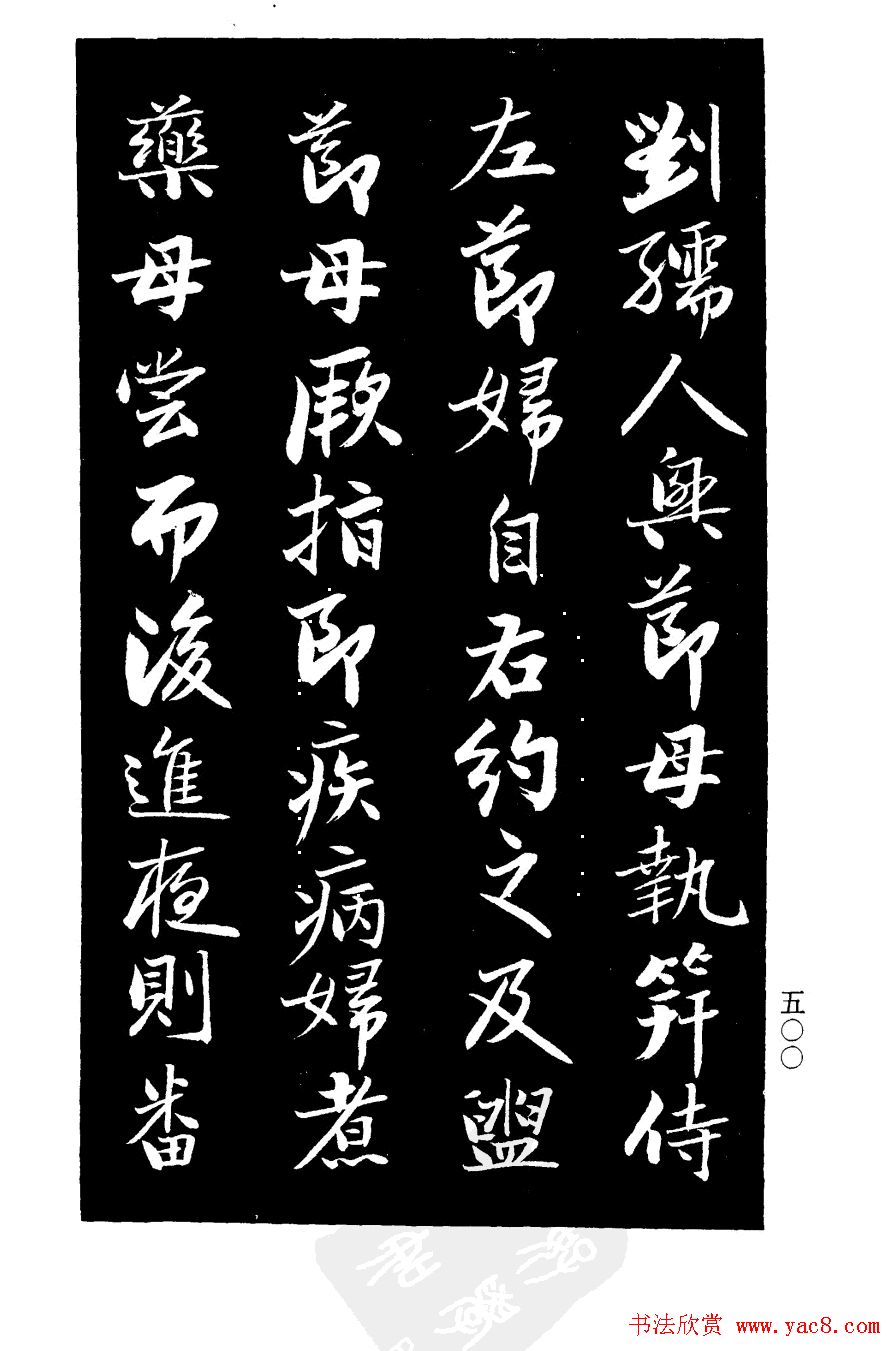 劉孺人與節母執笄侍
左節婦自右約之及盥
節母厥指即疾病婦煮
藥母嘗而後進夜則番
五〇〇
书法欣赏 www.yac8.com